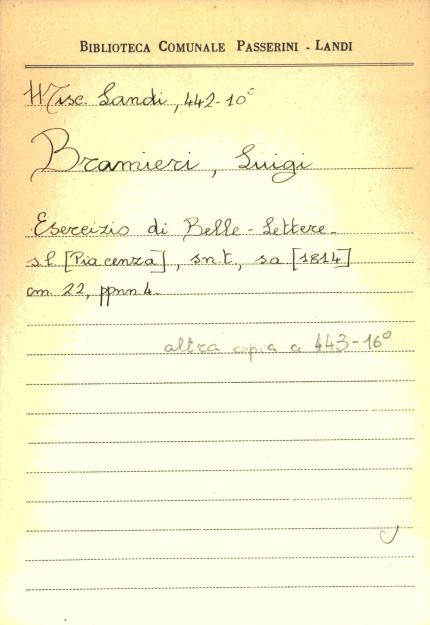 BIBLIOTECA COMUNALE PASSERINI - LANDI
Misc. Landi, 442-10°
Bramieri, Luigi
Esercizio di Belle-Lettere.
s.l [Piacenza], s.n.t, s.a [1814]
cm. 22, ppnn 4.
altra copia a 443-16°